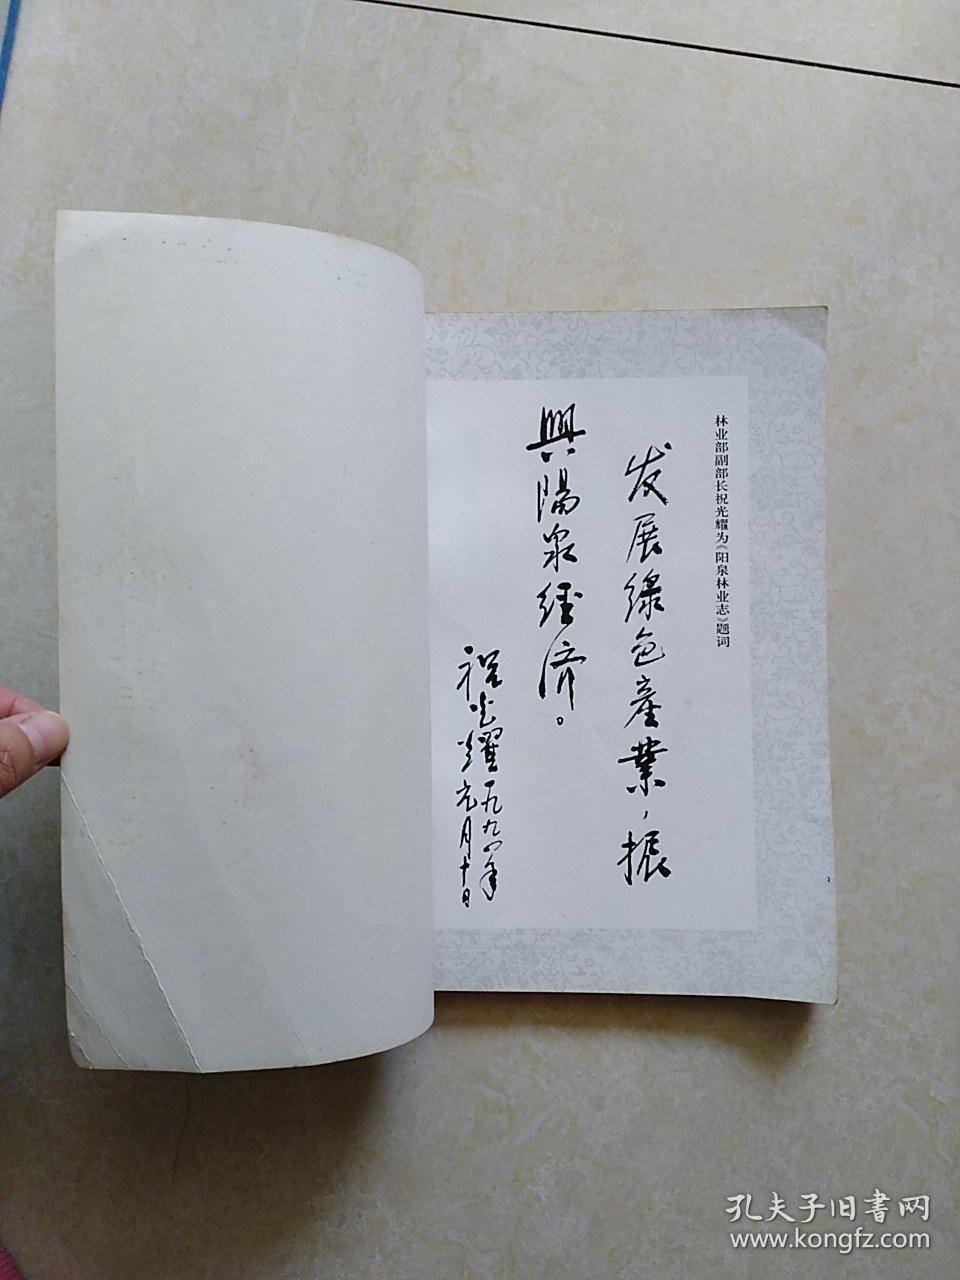 林业部副部长祝光耀为《阳泉林业志》题词
发展綠色産業，振
興陽泉经济。
祝光耀一九九四年
元月十日
孔夫子旧书网
www.kongfz.com